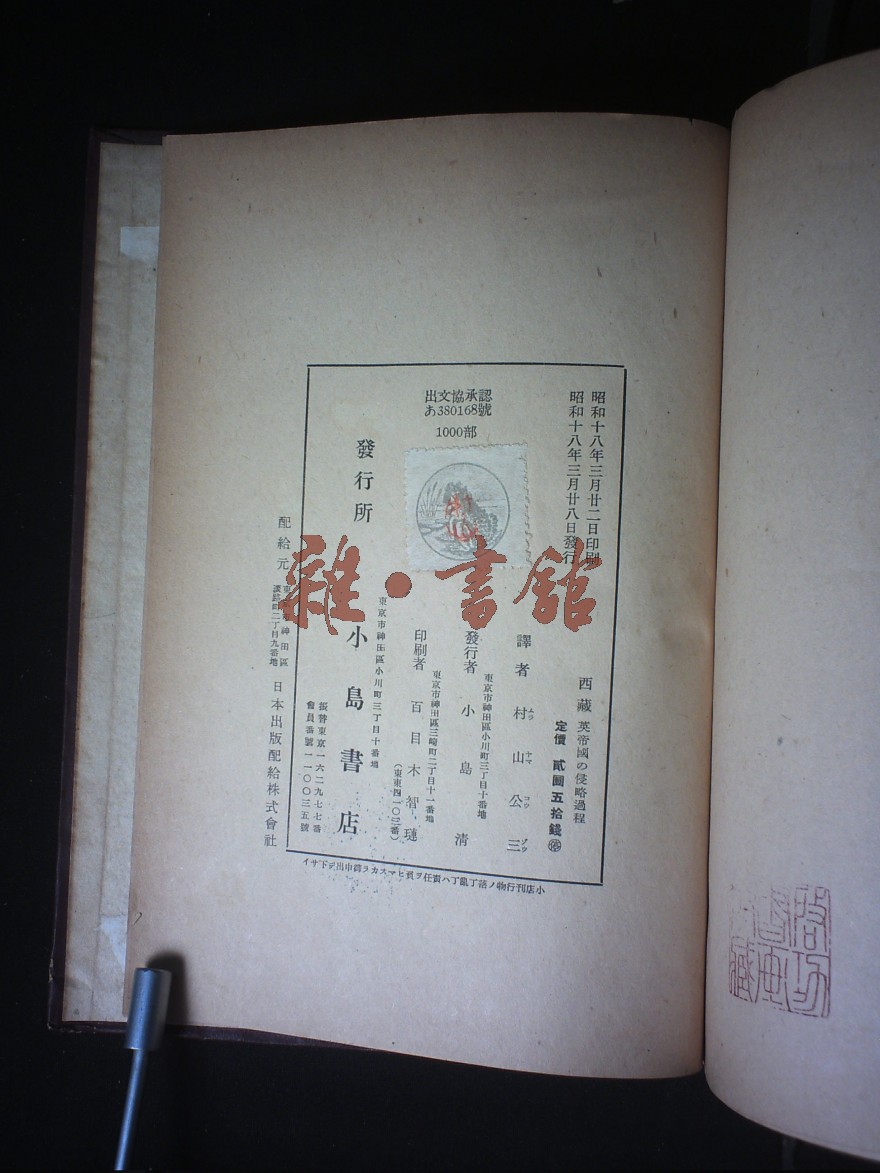 昭和十八年三月廿二日印刷
昭和十八年三月廿八日發行
西藏 英帝國の侵略過程
定價 貳圓五拾錢 停
譯者 村山公三
ムラ ヤマ コウ ゾウ
東京市神田區小川町三丁目十番地
發行者 小島清
東京市神田區三崎町二丁目十一番地
印刷者 百目木智璉
(東東四一〇三番)
出文協承認
あ380168號
1000部
東京市神田區小川町三丁目十番地
發行所 小島書店
振替東京一六二九七七番
會員番號一一〇〇三五號
配給元 東京市神田區
淡路町二丁目九番地
日本出版配給株式會社
小店刊行物ノ落丁亂丁ハ責任ヲ負ヒマスカラ御申出デ下サイ
雜·書館